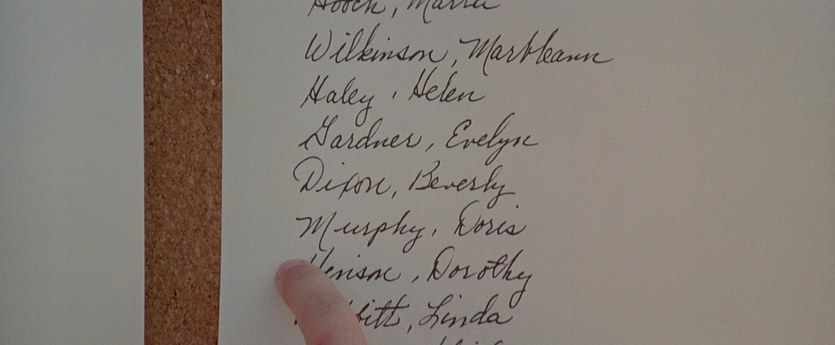 Wilkinson, Marbleann
Haley, Helen
Gardner, Evelyn
Dixon, Beverly
Murphy, Doris
Dorothy
Linda